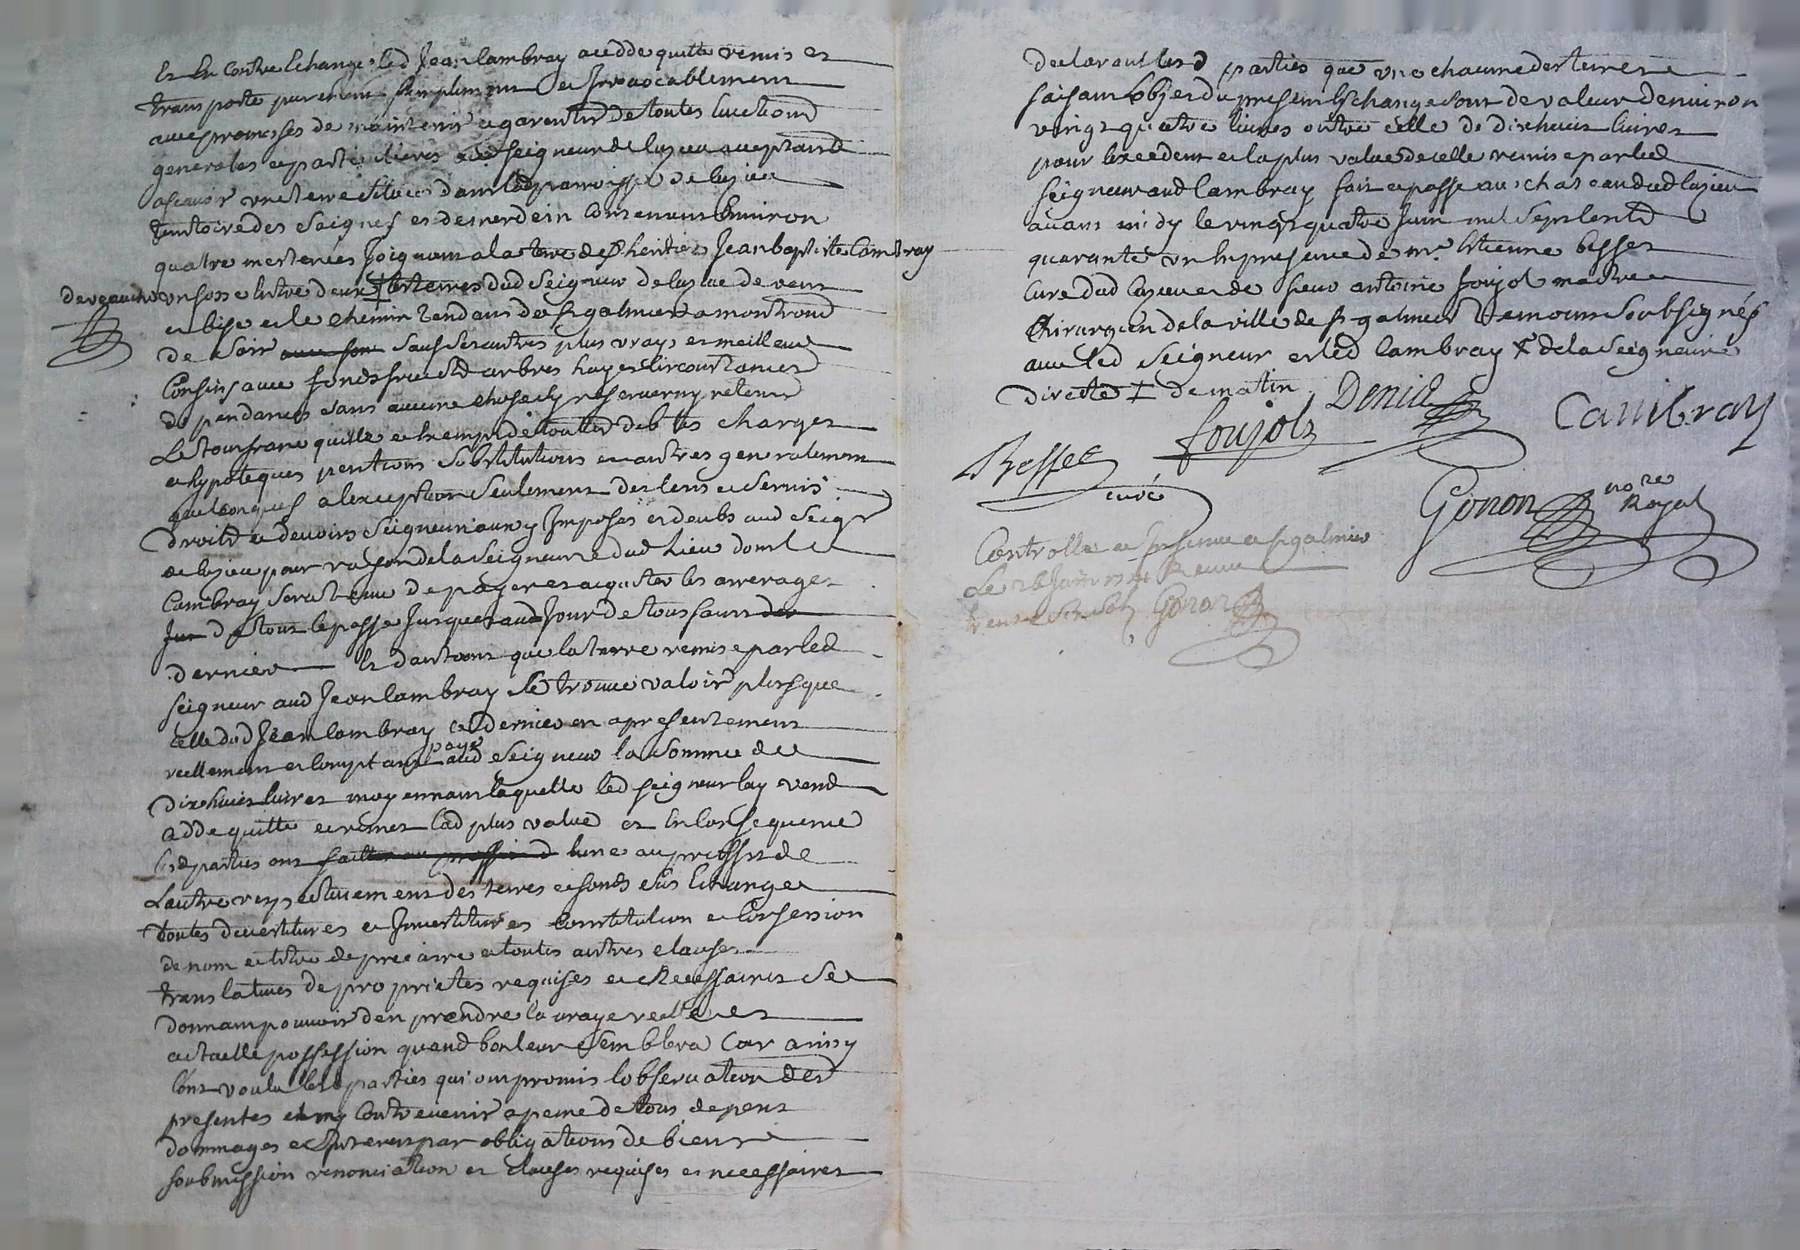 Et En Contre Echange led Jean Cambray a cedde quitte remis et
transporte purement simplement et Irrevocablement
avec promesses de maintenir et garentir de toutes Evictions
generales et particulieres aud seigneur de Cuzieu acceptant
ascavoir une terre situee dans lad parroisse de Cuzieu
territoire des Saignes et des verdein Contenant Environ
quatre mesterées Joignant a la terre des heritiers Jean baptiste Cambray
un fosse Entre deux ‡ les terres dud Seigneur de Cuzieu de vent
de veaucho
et bise et le chemin tendant de st galmier a montrond
de soir avec son sauf ses autres plus vrays et meilleurs
Confins avec fonds fruits arbres hayes Circonstances
dependances sans aucune chose y reserver ny retenir
Le tout franc quitte et Exempt de toutes debtes charges
et hypoteques pentions substitutions et autres generalement
quelconques a lexception seulement des Cens et servis
droits et devoirs seigneuriaux y Imposés et deubs aud seigr
de Cuzieu pour raison de la seigneurie dud Lieu dont le
Cambray sera tenu de payer et acquiter les arrerages
Jus de tout le passe Jusques aud Jour de toussaint der
dernier Et dautant que la terre remise par led
seigneur aud Jean Cambray se trouve valoir plus que
celle dud Jean Cambray ce dernier en a presentement
reellement et Comptant payé aud seigneur la somme de
dixhuit Livres moyennant laquelle led seigneur luy vend
cedde quitte et remet lad plus value et En Consequence
les parties ont faittes au proffit d lune au proffit de
Lautre respectivement des terres et fonds sus Echangés
toutes devestitures et Investitures Constitution et Concession
de nom et titre de precaire et toutes autres clauses
translatives de proprietes requises et Necessaires se
donnant pouvoir den prendre la vraye reelle et
actuelle possession quand bon leur semblera Car ainsy
lont voulu lesd parties qui ont promis lobservation des
presentes et ny Contrevenir a peine de tous depens
dommages et Interests par obligations de biens
soubmission renonciation et clauses requises et necessaires
declarant lesd parties que une chacune des terres
faisant lobjet du present Eschange sont de valeur denviron
vingt quatre livres outre celle de dixhuit livres
pour lexcedent et la plus value de celle remise par led
seigneur aud Cambray fait et passe au chateau dud Cuzieu
avant midy le vingt quatre Juin mil sept Cents
quarante un En presence de mre Etienne besset
Cure dud Cuzieu et de sieur antoine foujols maitre
Chirurgien de la ville de st galmier temoins soubsignés
avec led seigneur et led Cambray ‡ de la seigneurie
directe ‡ de matin
Denis
Cambray
Besset
curé
foujols
Gonon
nore
Royal
Controlle et Insinue a st galmier
Le 28 Juin 1741 Receu
Gonon